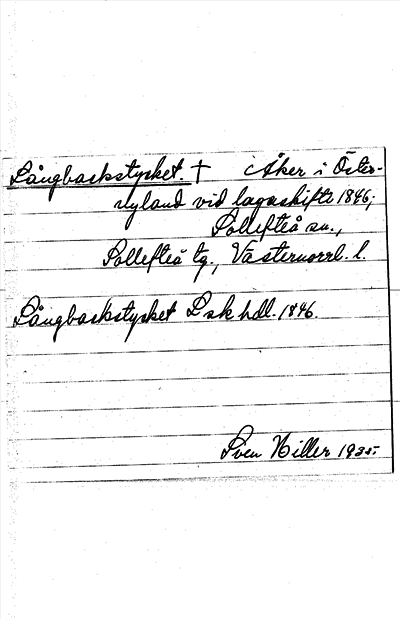 Långbackstycket. † Åker i Öster-
nyland vid lagaskifte 1846;
Sollefteå sn.,
Sollefteå tg., Västernorrl. l.
Långbackstycket Lsk hdl. 1846.
Sven Hiller 1935.